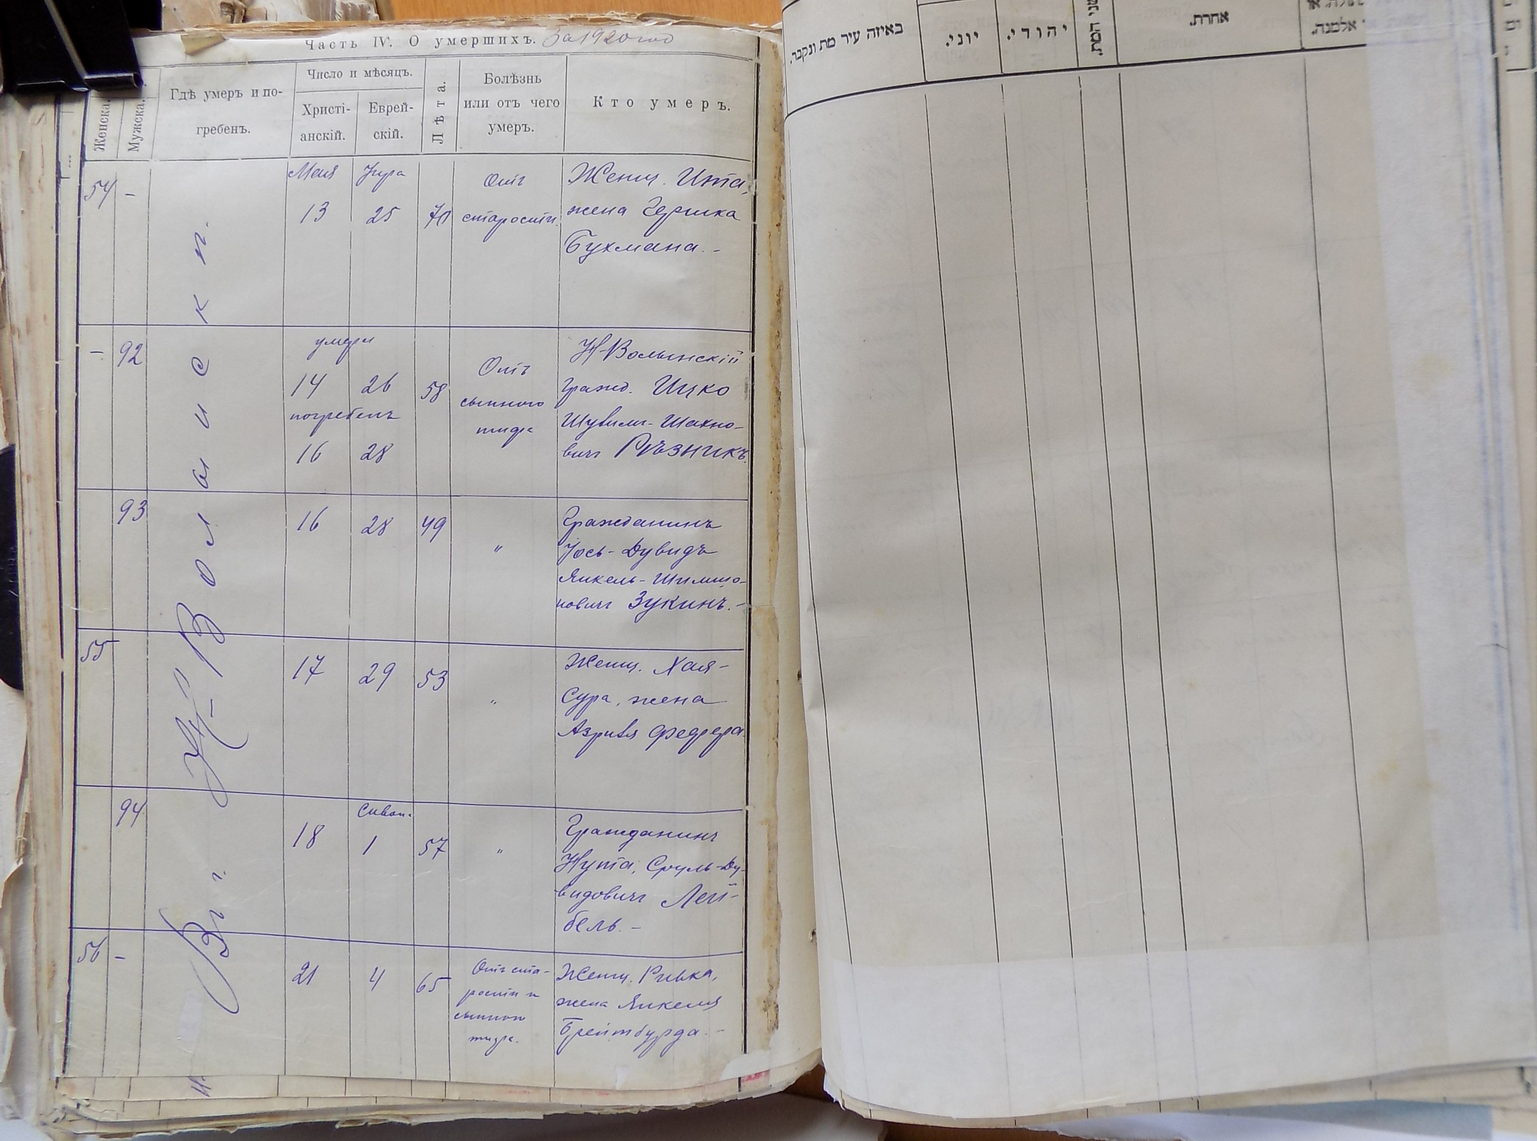 Часть IV. О умершихъ. За 1920 год
Женска.
Мужска.
Гдѣ умеръ и по-
гребенъ.
Число и мѣсяцъ.
Христі-
анскій.
Еврей-
скій.
Лѣта.
Болѣзнь
или отъ чего
умеръ.
Кто умеръ.
Въ г. Н-Волынскѣ
54 -
Мая
13
Іира
25
70
Отъ
старости
Женщ. Ита,
жена Гершка
Бухмана. -
- 92
умеръ
14 26
погребенъ
16 28
58
Отъ
сыпного
тифа
Н-Волынскій
гражд. Ицко
Шувими-Шахно-
вичъ Рѣзникъ
93
16 28 49
"
Гражданинъ
Іось-Дувидъ
Янкель-Шимшо-
новичъ Зукинъ. -
55
17 29 53
"
Женщ. Хая-
Сура, жена
Азриля Федера
94
Сиван.
18 1 57
"
Гражданинъ
Нута, Сруль-Ду-
видовичъ Лей-
бель. -
56 -
21 4 65
Отъ ста-
рости и
сыпного
тифа.
Женщ. Ривка,
жена Янкеля
Брейтбурда. -
באיזה עיר מת ונקבר.
יוני.
יהודי.
שני המת.
אחרת.
או אלמנה.